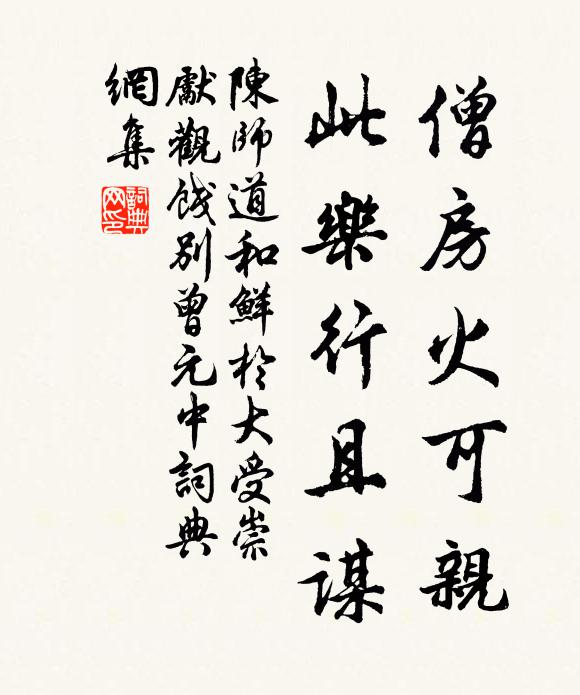 僧房火可親
此樂行且謀
陳師道和鮮於大受崇
獻觀餞別曾元中詞典
網集
詞典
网印